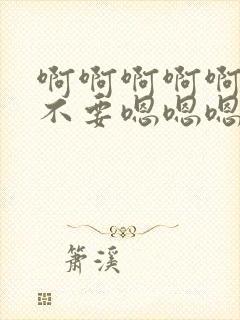 啊啊啊啊啊
不要嗯嗯嗯
箫溪